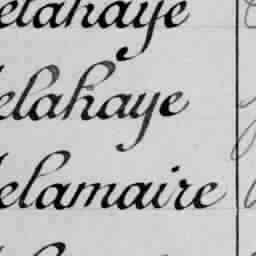 elahaye
elahaye
elamaire